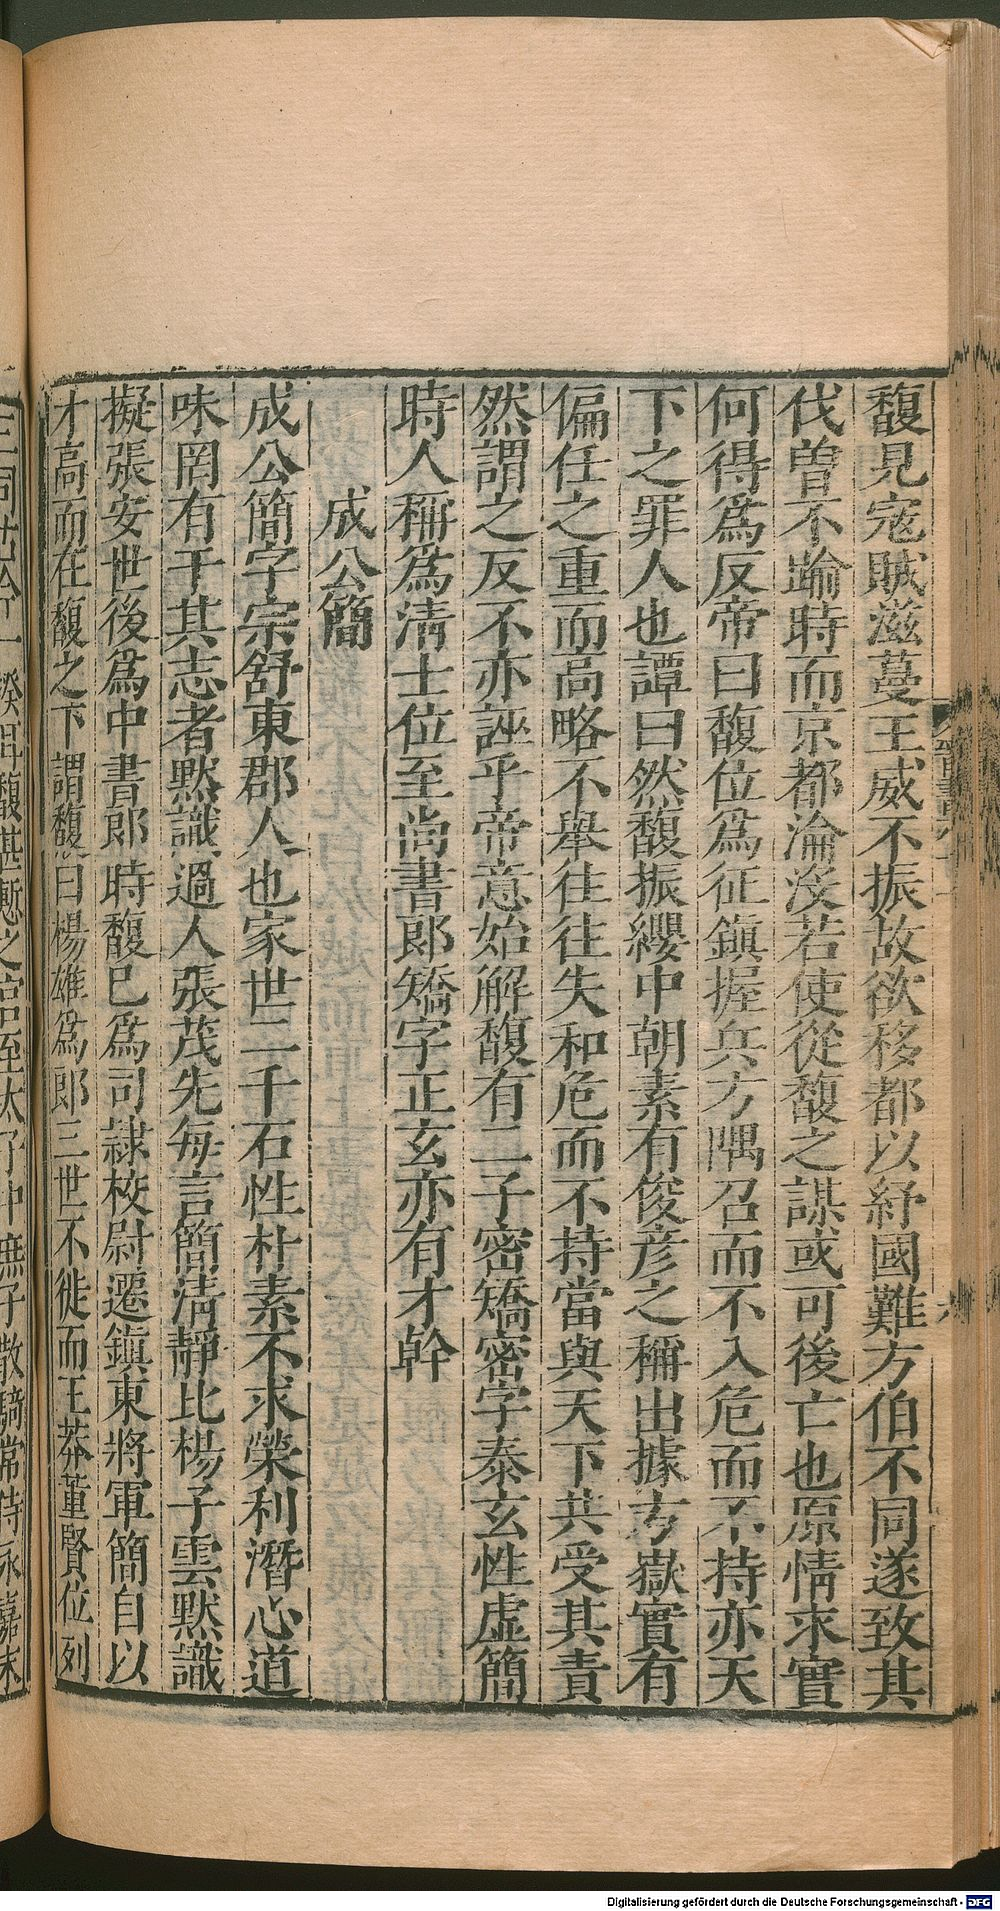 馥見寇賊滋蔓王威不振故欲移都以紓國難方伯不同遂致其
伐曽不踰時而京都淪沒若使從馥之謀或可後亡也原情求實
何得爲反帝曰馥位爲征鎮握兵方隅召而不入危而不持亦天
下之罪人也譚曰然馥振纓中朝素有俊彦之稱出據方嶽實有
偏任之重而高略不舉往往失和危而不持當與天下共受其責
然謂之反不亦誣乎帝意始解馥有二子密矯密字泰玄性虚簡
時人稱爲清士位至尚書郎矯字正玄亦有才幹
成公簡
成公簡字宗舒東郡人也家世二千石性朴素不求榮利潛心道
味罔有干其志者黙識過人張茂先每言簡清靜比楊子雲黙識
擬張安世後爲中書郎時馥已爲司隷校尉遷鎮東將軍簡自以
才高而在馥之下謂馥曰楊雄爲郎三世不徙而王莽董賢位列
馥甚慙之官至太子中庶子散騎常侍永嘉末
Digitalisierung gefördert durch die Deutsche Forschungsgemeinschaft - DFG